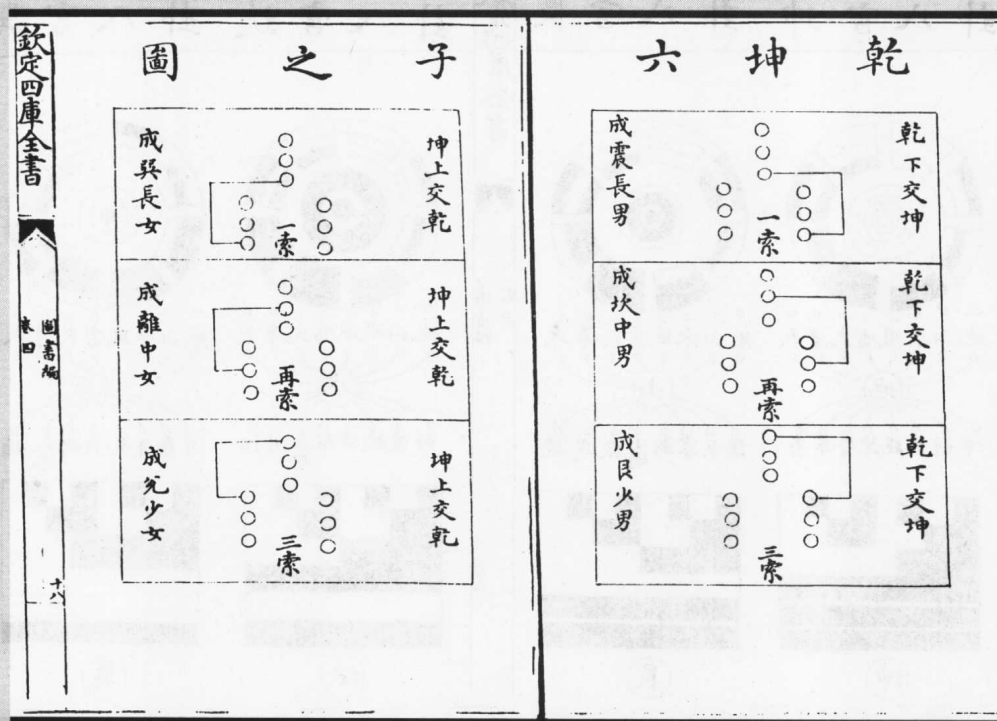 乾坤六
乾下交坤
一索
成震長男
乾下交坤
再索
成坎中男
乾下交坤
三索
成艮少男
子之圖
坤上交乾
一索
成巽長女
坤上交乾
再索
成離中女
坤上交乾
三索
成兊少女
欽定四庫全書
圖書編
卷四
十八